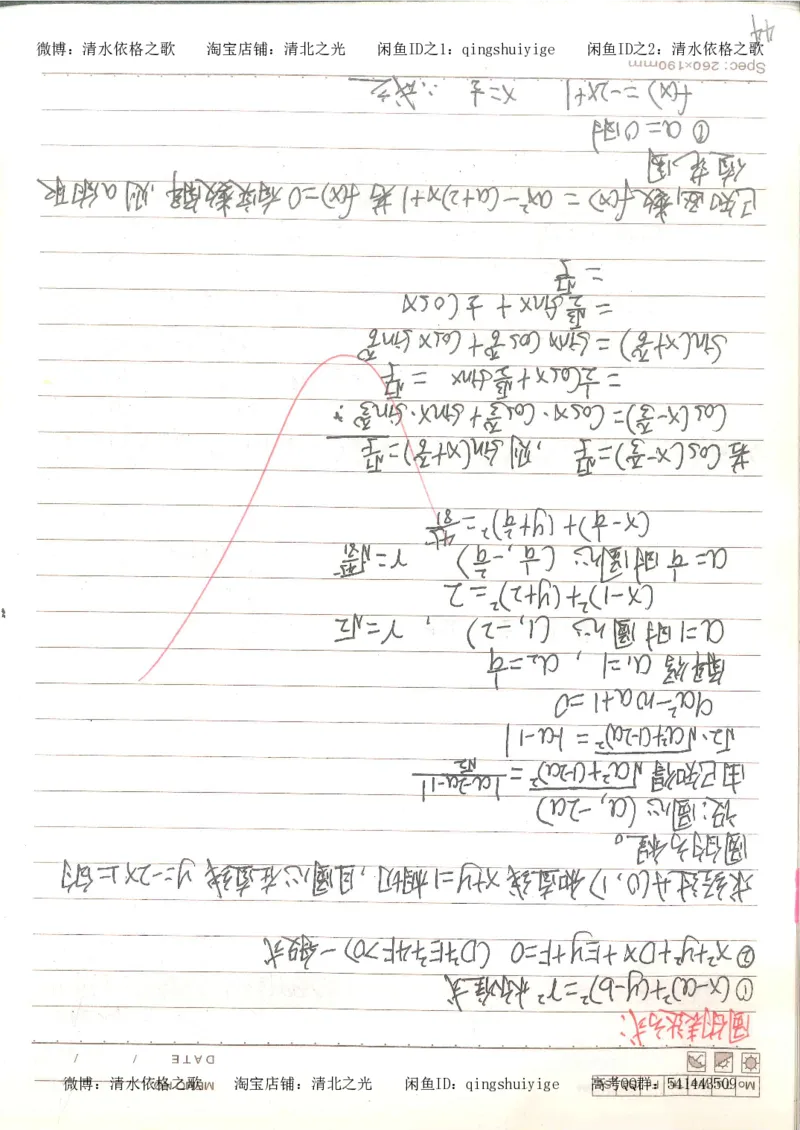 微博：清水依格之歌 淘宝店铺：清北之光 闲鱼ID之1：qingshuiyige 闲鱼ID之2：清水依格之歌
DATE / /
圆的表达方式:
① (x-a)²+(y-b)²=r² 标准式
② x²+y²+Dx+Ey+F=0 (D²+E²-4F>0) 一般式
求经过A(0,1)和直线x+y=1相切,且圆心在直线y=-2x上的
圆的方程。
设:圆心(a,-2a)
由已知得 √a²+(1-2a)² = |a-2a-1|/√2
√2·√a²+(1-2a)² = |-a-1|
9a²-10a+1=0
解得 a₁=1, a₂=1/9
a=1时圆心 (1,-2), r=√2
(x-1)²+(y+2)²=2
a=1/9时圆心 (1/9,-2/9)
若 cos(x-π/3)=√2/3, 则 sin(x+π/6)=√2/3
cos(x-π/3)=cosx·cosπ/3+sinx·sinπ/3
=1/2cosx+√3/2sinx
sin(x+π/6)=sinxcosπ/6+cosxsinπ/6
=√3/2sinx+1/2cosx
已知函数f(x)=ax²-(a+2)x+1若f(x)=0有实数解,则a的取
值范围
① a=0时
f(x)=-2x+1 x=1/2 ∴成立
Spec: 260×190mm
44
微博：清水依格之歌 淘宝店铺：清北之光 闲鱼ID：qingshuiyige 高考QQ群：541443509